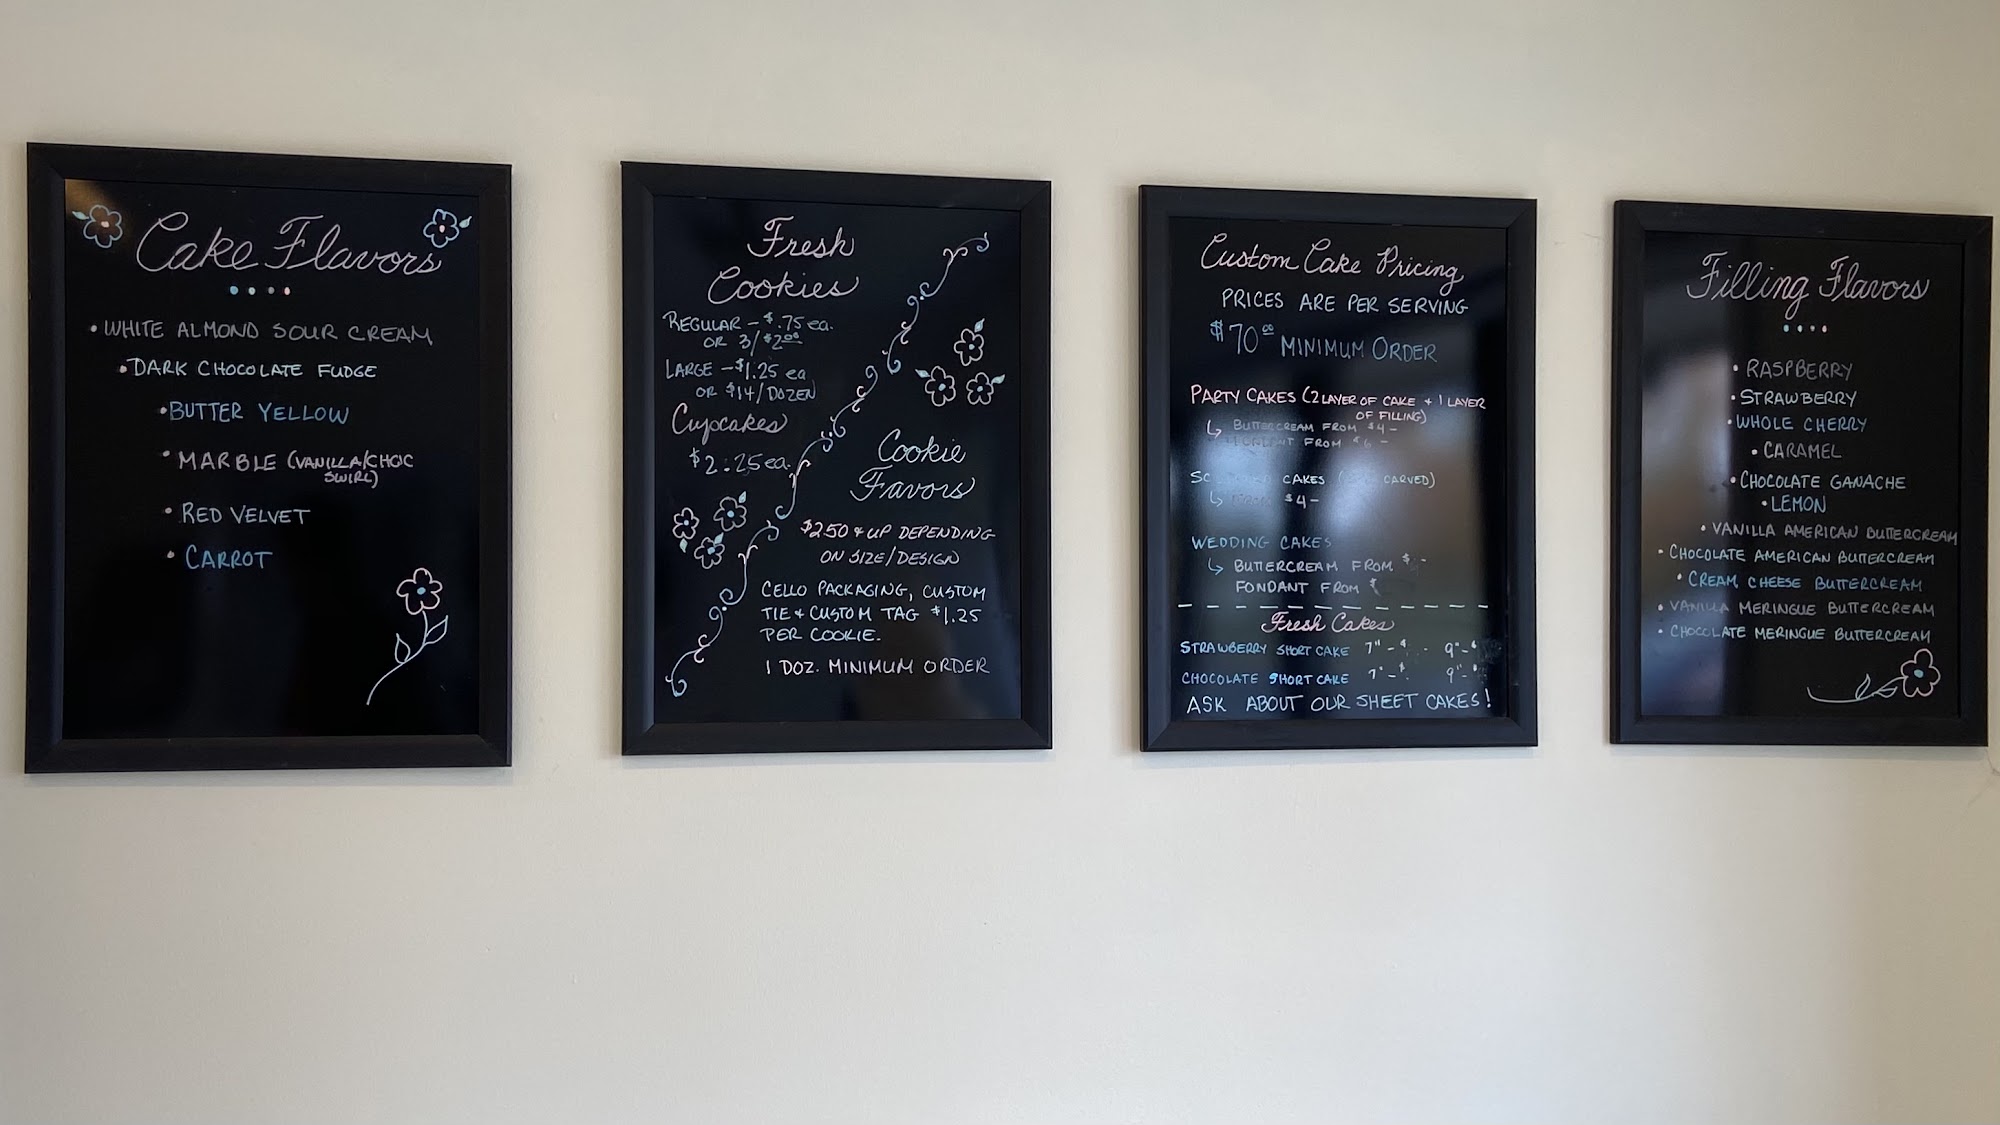 Cake Flavors
• WHITE ALMOND SOUR CREAM
• DARK CHOCOLATE FUDGE
• BUTTER YELLOW
• MARBLE (VANILLA/CHOC
SWIRL)
• RED VELVET
• CARROT
Fresh
Cookies
REGULAR – $.75 ea.
OR 3/$2.00
LARGE – $1.25 ea
OR $14/DOZEN
Cupcakes
$2.25 ea.
Cookie
Favors
$2.50 & UP DEPENDING
ON SIZE/DESIGN
CELLO PACKAGING, CUSTOM
TIE & CUSTOM TAG $1.25
PER COOKIE.
1 DOZ. MINIMUM ORDER
Custom Cake Pricing
PRICES ARE PER SERVING
$70.00 MINIMUM ORDER
PARTY CAKES (2 LAYER OF CAKE + 1 LAYER
OF FILLING)
↳ BUTTERCREAM FROM $4 –
FROM $6 –
CAKES ( CARVED)
↳ $4 –
WEDDING CAKES
↳ BUTTERCREAM FROM $ –
FONDANT FROM $
Fresh Cakes
STRAWBERRY SHORT CAKE 7" – $ 9" – $
CHOCOLATE SHORT CAKE 7" – $ 9" – $
ASK ABOUT OUR SHEET CAKES!
Filling Flavors
• RASPBERRY
• STRAWBERRY
• WHOLE CHERRY
• CARAMEL
• CHOCOLATE GANACHE
• LEMON
• VANILLA AMERICAN BUTTERCREAM
• CHOCOLATE AMERICAN BUTTERCREAM
• CREAM CHEESE BUTTERCREAM
• VANILLA MERINGUE BUTTERCREAM
• CHOCOLATE MERINGUE BUTTERCREAM